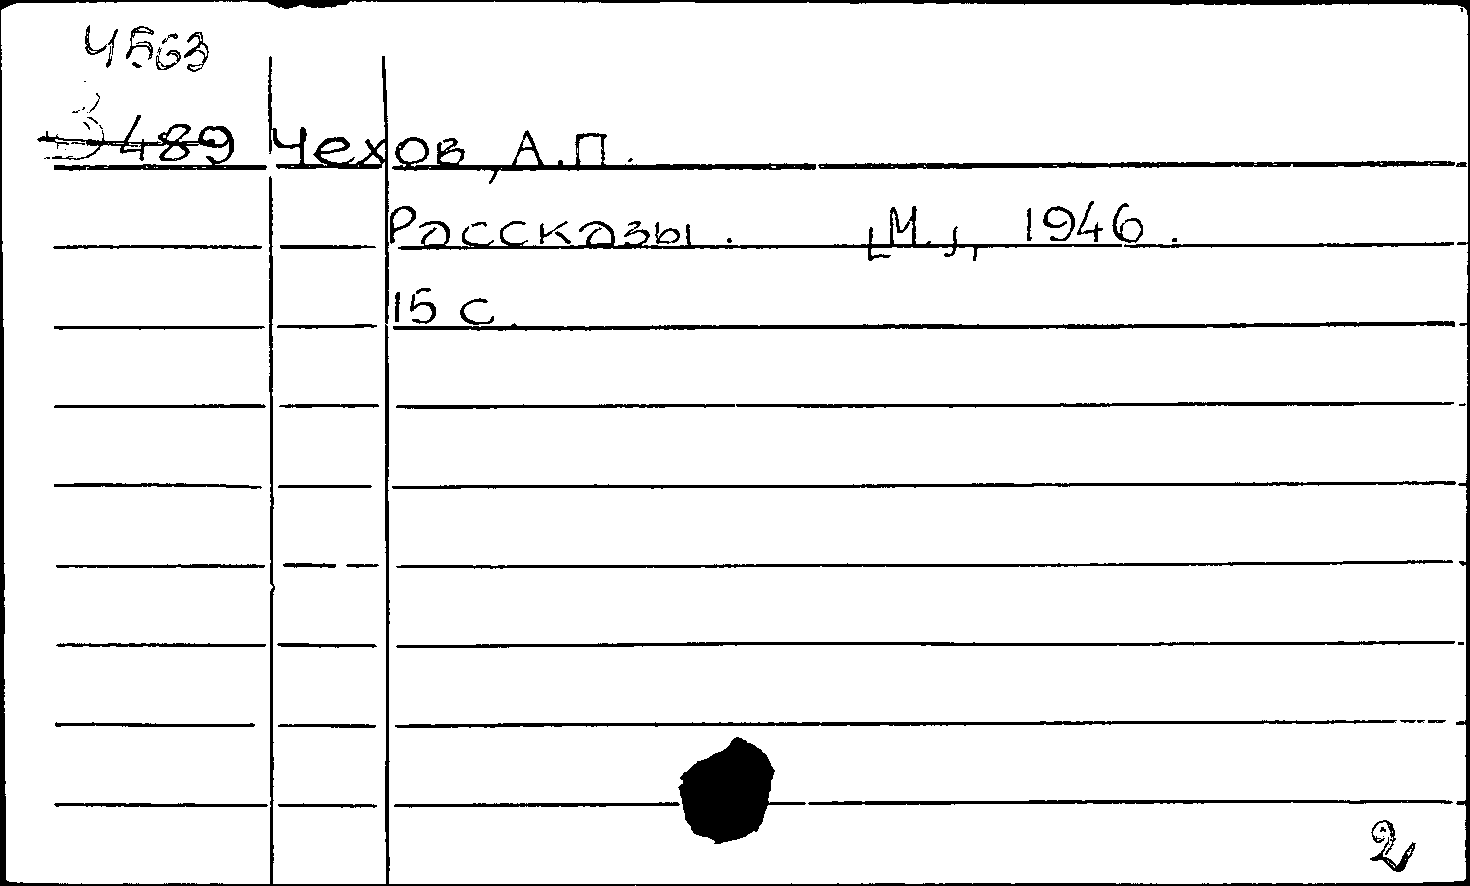 4563
489 Чехов, А.П.
Рассказы. [М.], 1946.
15 с.
2